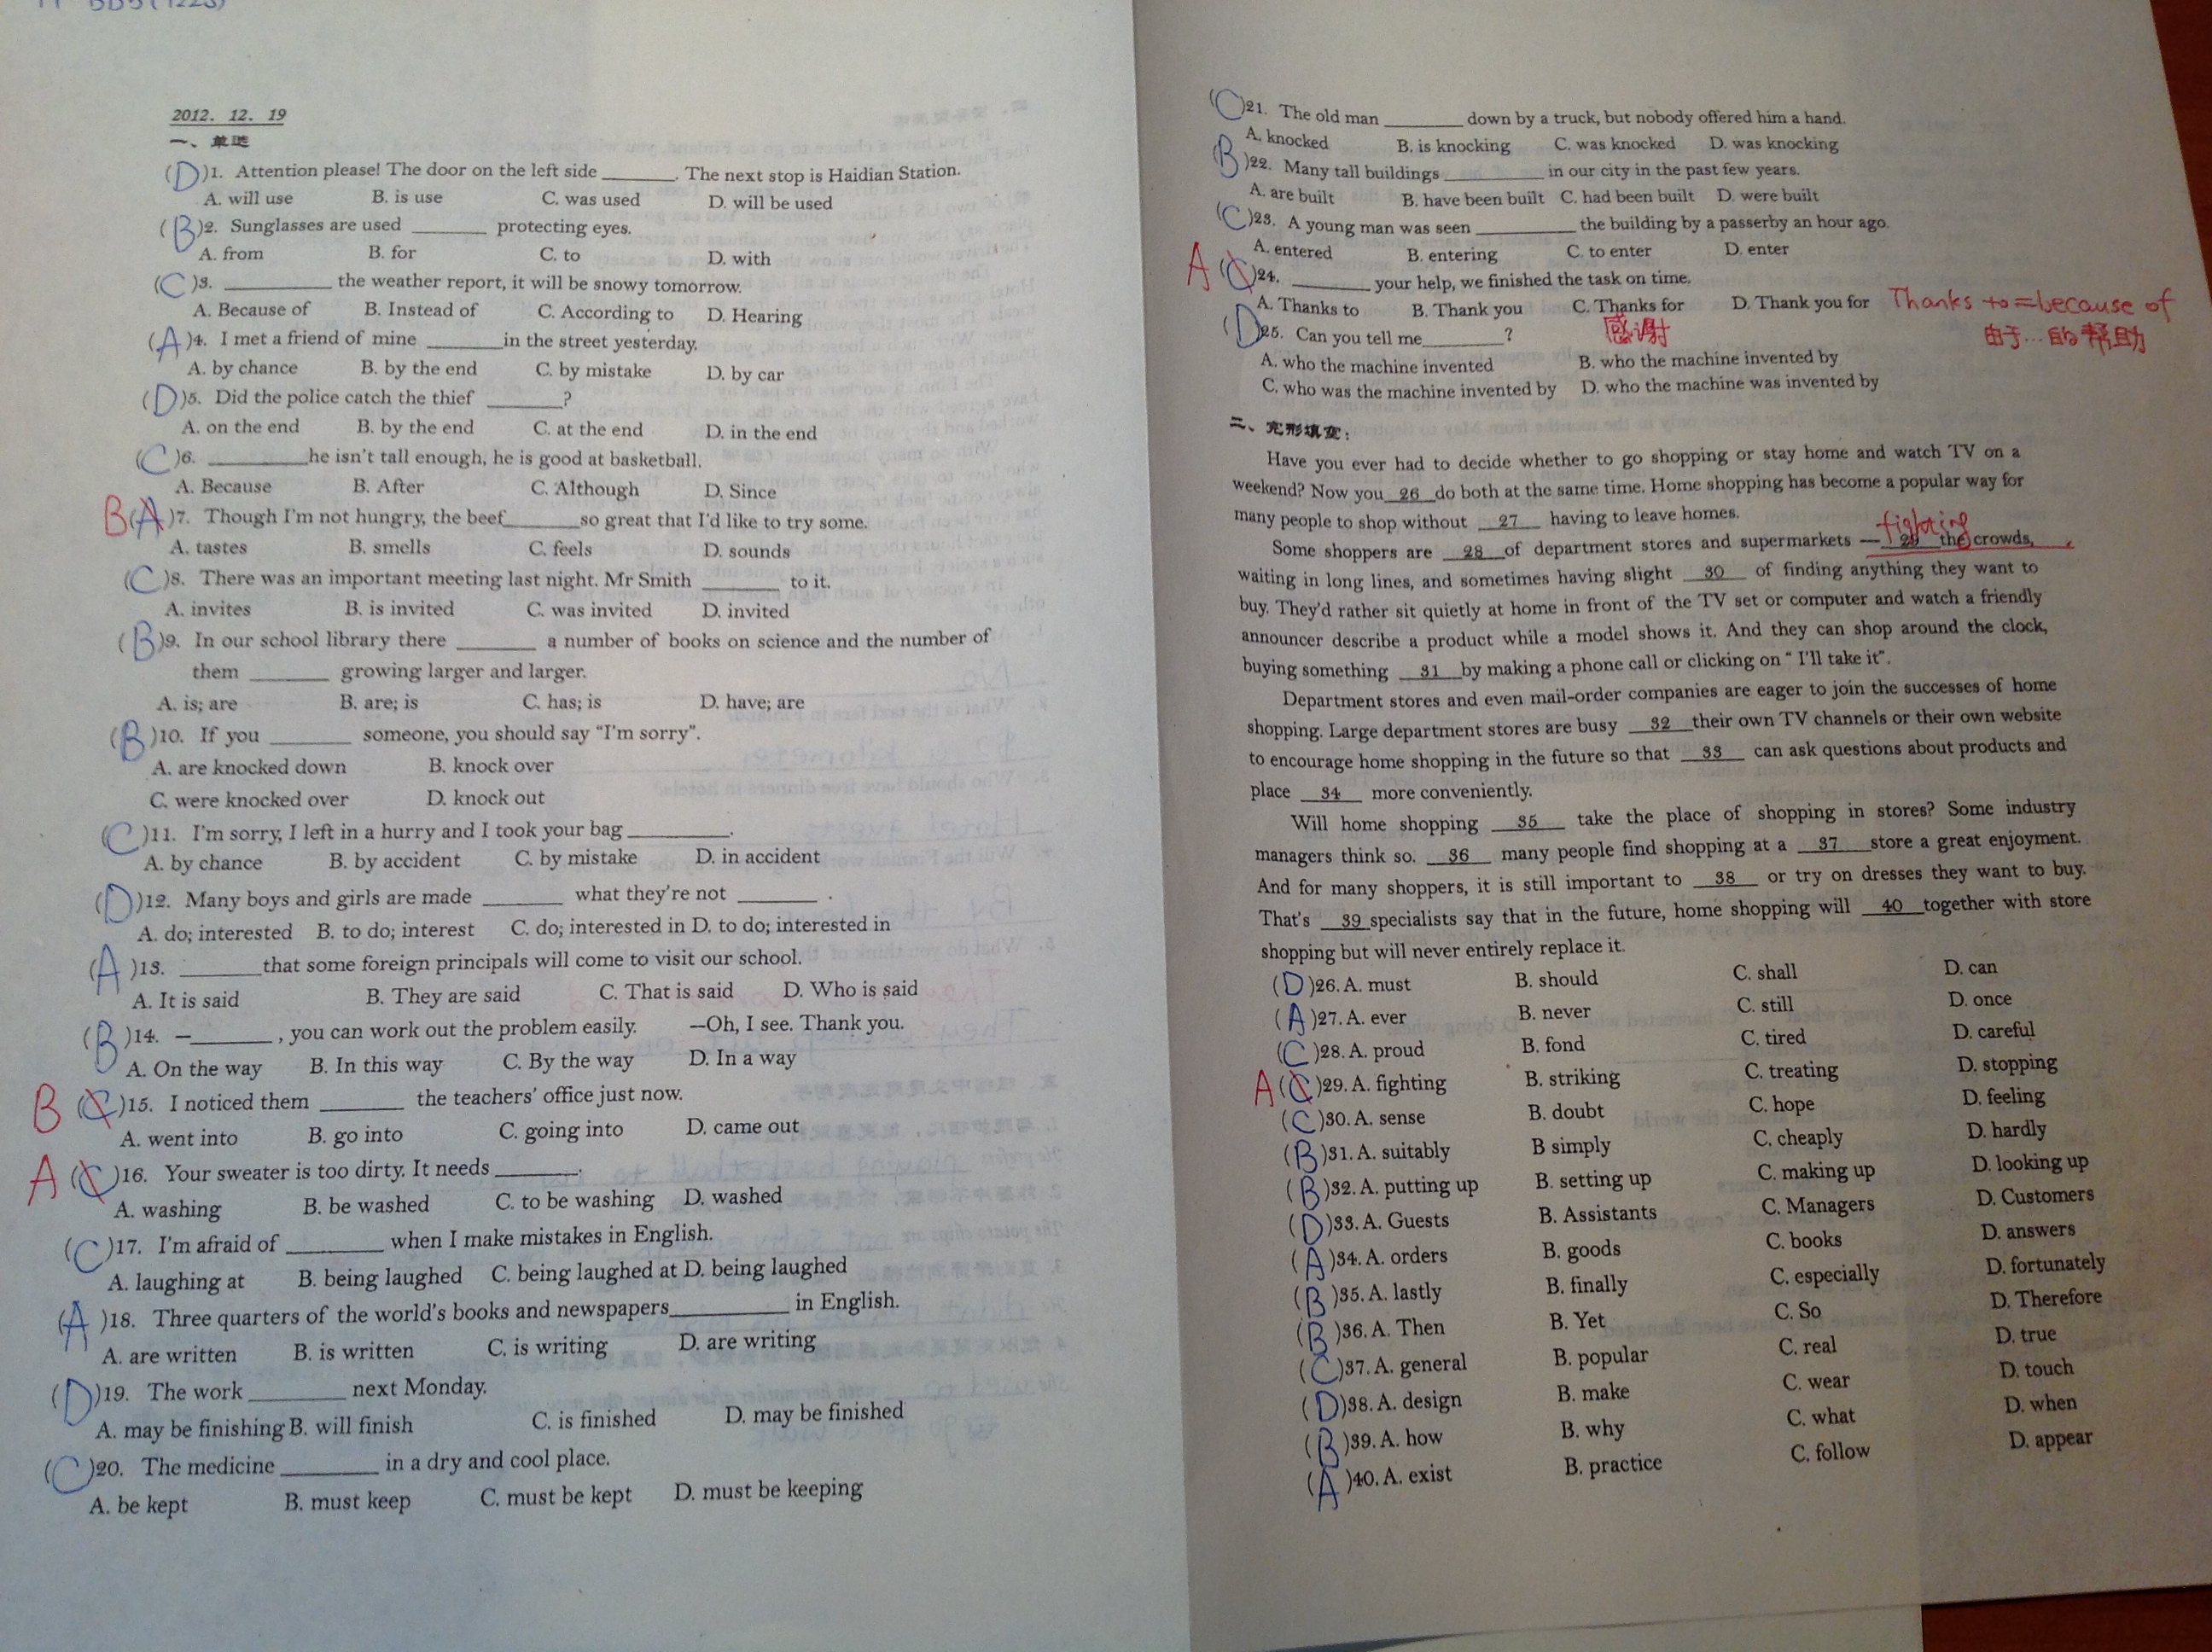 2012. 12. 19
一、单选
(D)1. Attention please! The door on the left side ______. The next stop is Haidian Station.
A. will use B. is use C. was used D. will be used
(B)2. Sunglasses are used ______ protecting eyes.
A. from B. for C. to D. with
(C)3. ______ the weather report, it will be snowy tomorrow.
A. Because of B. Instead of C. According to D. Hearing
(A)4. I met a friend of mine ______in the street yesterday.
A. by chance B. by the end C. by mistake D. by car
(D)5. Did the police catch the thief ______?
A. on the end B. by the end C. at the end D. in the end
(C)6. ______he isn't tall enough, he is good at basketball.
A. Because B. After C. Although D. Since
B(A)7. Though I'm not hungry, the beef______so great that I'd like to try some.
A. tastes B. smells C. feels D. sounds
(C)8. There was an important meeting last night. Mr Smith ______ to it.
A. invites B. is invited C. was invited D. invited
(B)9. In our school library there ______ a number of books on science and the number of
them ______ growing larger and larger.
A. is; are B. are; is C. has; is D. have; are
(B)10. If you ______ someone, you should say “I'm sorry”.
A. are knocked down B. knock over
C. were knocked over D. knock out
(C)11. I'm sorry, I left in a hurry and I took your bag ______.
A. by chance B. by accident C. by mistake D. in accident
(D)12. Many boys and girls are made ______ what they're not ______ .
A. do; interested B. to do; interest C. do; interested in D. to do; interested in
(A)13. ______that some foreign principals will come to visit our school.
A. It is said B. They are said C. That is said D. Who is said
(B)14. —______ , you can work out the problem easily. —Oh, I see. Thank you.
A. On the way B. In this way C. By the way D. In a way
B (C)15. I noticed them ______ the teachers' office just now.
A. went into B. go into C. going into D. came out
A (C)16. Your sweater is too dirty. It needs ______.
A. washing B. be washed C. to be washing D. washed
(C)17. I'm afraid of ______ when I make mistakes in English.
A. laughing at B. being laughed C. being laughed at D. being laughed
(A)18. Three quarters of the world's books and newspapers______ in English.
A. are written B. is written C. is writing D. are writing
(D)19. The work ______ next Monday.
A. may be finishing B. will finish C. is finished D. may be finished
(C)20. The medicine ______ in a dry and cool place.
A. be kept B. must keep C. must be kept D. must be keeping
(C)21. The old man ______ down by a truck, but nobody offered him a hand.
A. knocked B. is knocking C. was knocked D. was knocking
(B)22. Many tall buildings ______ in our city in the past few years.
A. are built B. have been built C. had been built D. were built
(C)23. A young man was seen ______ the building by a passerby an hour ago.
A. entered B. entering C. to enter D. enter
A (C)24. ______ your help, we finished the task on time.
A. Thanks to B. Thank you C. Thanks for D. Thank you for Thanks to = because of
感谢 由于...的帮助
(D)25. Can you tell me______?
A. who the machine invented B. who the machine invented by
C. who was the machine invented by D. who the machine was invented by
二、完形填空：
Have you ever had to decide whether to go shopping or stay home and watch TV on a
weekend? Now you 26 do both at the same time. Home shopping has become a popular way for
many people to shop without 27 having to leave homes.
fighting
Some shoppers are 28 of department stores and supermarkets — 29 the crowds,
waiting in long lines, and sometimes having slight 30 of finding anything they want to
buy. They'd rather sit quietly at home in front of the TV set or computer and watch a friendly
announcer describe a product while a model shows it. And they can shop around the clock,
buying something 31 by making a phone call or clicking on “ I'll take it”.
Department stores and even mail-order companies are eager to join the successes of home
shopping. Large department stores are busy 32 their own TV channels or their own website
to encourage home shopping in the future so that 33 can ask questions about products and
place 34 more conveniently.
Will home shopping 35 take the place of shopping in stores? Some industry
managers think so. 36 many people find shopping at a 37 store a great enjoyment.
And for many shoppers, it is still important to 38 or try on dresses they want to buy.
That's 39 specialists say that in the future, home shopping will 40 together with store
shopping but will never entirely replace it.
(D)26. A. must B. should C. shall D. can
(A)27. A. ever B. never C. still D. once
(C)28. A. proud B. fond C. tired D. careful
A (C)29. A. fighting B. striking C. treating D. stopping
(C)30. A. sense B. doubt C. hope D. feeling
(B)31. A. suitably B simply C. cheaply D. hardly
(B)32. A. putting up B. setting up C. making up D. looking up
(D)33. A. Guests B. Assistants C. Managers D. Customers
(A)34. A. orders B. goods C. books D. answers
(B)35. A. lastly B. finally C. especially D. fortunately
(B)36. A. Then B. Yet C. So D. Therefore
(C)37. A. general B. popular C. real D. true
(D)38. A. design B. make C. wear D. touch
(B)39. A. how B. why C. what D. when
(A)40. A. exist B. practice C. follow D. appear